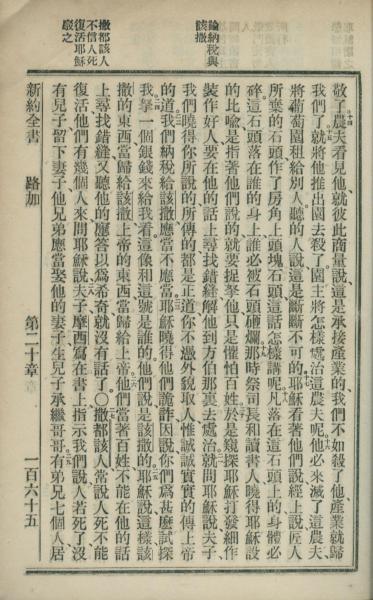 論納稅與該撒
撒都該人不信人死復活耶穌廢之
敬了農夫看見他就彼此商量說這是承接產業的我們不如殺了他產業就歸
我們了就將他推出園去殺了園主將怎樣處治這農夫呢他必來滅了這農夫
將葡萄園租給別人聽的人說這是斷斷不可的耶穌看著他們說經上說匠人
所棄的石頭作了房角上頭塊石頭這話怎樣講呢凡落在這石頭上的身體必
碎這石頭落在誰的身上誰必被石頭砸爛那時祭司長和讀書人曉得耶穌設
的比喻是指著他們說的就要捉拏他只是懼怕百姓於是窺探耶穌打發細作
裝作好人要在他的話上尋找錯縫解他到方伯那裏去處治就問耶穌說夫子
我們曉得你所說的所傳的都是正道你不憑外貌取人惟誠誠實實的傳上帝
的道我們納稅給該撒應當不應當耶穌曉得他們詭詐因說你們爲甚麽試探
我拏一個銀錢來給我看這像和這號是誰的他們說是該撒的耶穌說這樣該
撒的東西當歸給該撒上帝的東西當歸給上帝他們當著百姓不能在他的話
上尋找錯縫又聽他的應答以爲希奇就沒有話了○撒都該人常說人死不能
復活他們有幾個人來問耶穌說夫子摩西寫在書上指示我們說人若死了沒
有兒子留下妻子他兄弟應當娶他的妻子生兒子承繼哥哥有弟兄七個人居
新約全書 路加 第二十章 一百六十五